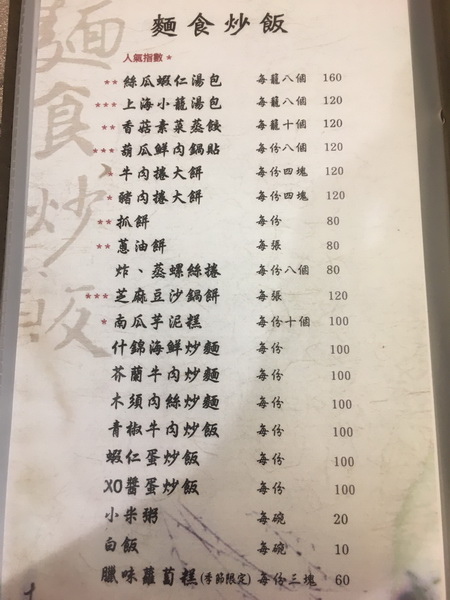 麵食炒飯
麵食炒飯
人氣指數 *
** 絲瓜蝦仁湯包 每籠八個 160
*** 上海小籠湯包 每籠八個 120
** 香菇素菜蒸餃 每籠十個 120
*** 葫瓜鮮肉鍋貼 每份八個 120
* 牛肉捲大餅 每份四塊 120
* 豬肉捲大餅 每份四塊 120
** 抓餅 每份 80
** 蔥油餅 每張 80
炸、蒸螺絲捲 每份八個 80
*** 芝麻豆沙鍋餅 每張 120
* 南瓜芋泥糕 每份十個 100
什錦海鮮炒麵 每份 100
芥蘭牛肉炒麵 每份 100
木須肉絲炒麵 每份 100
青椒牛肉炒飯 每份 100
蝦仁蛋炒飯 每份 100
XO醬蛋炒飯 每份 100
小米粥 每碗 20
白飯 每碗 10
臘味蘿蔔糕(季節限定) 每份三塊 60